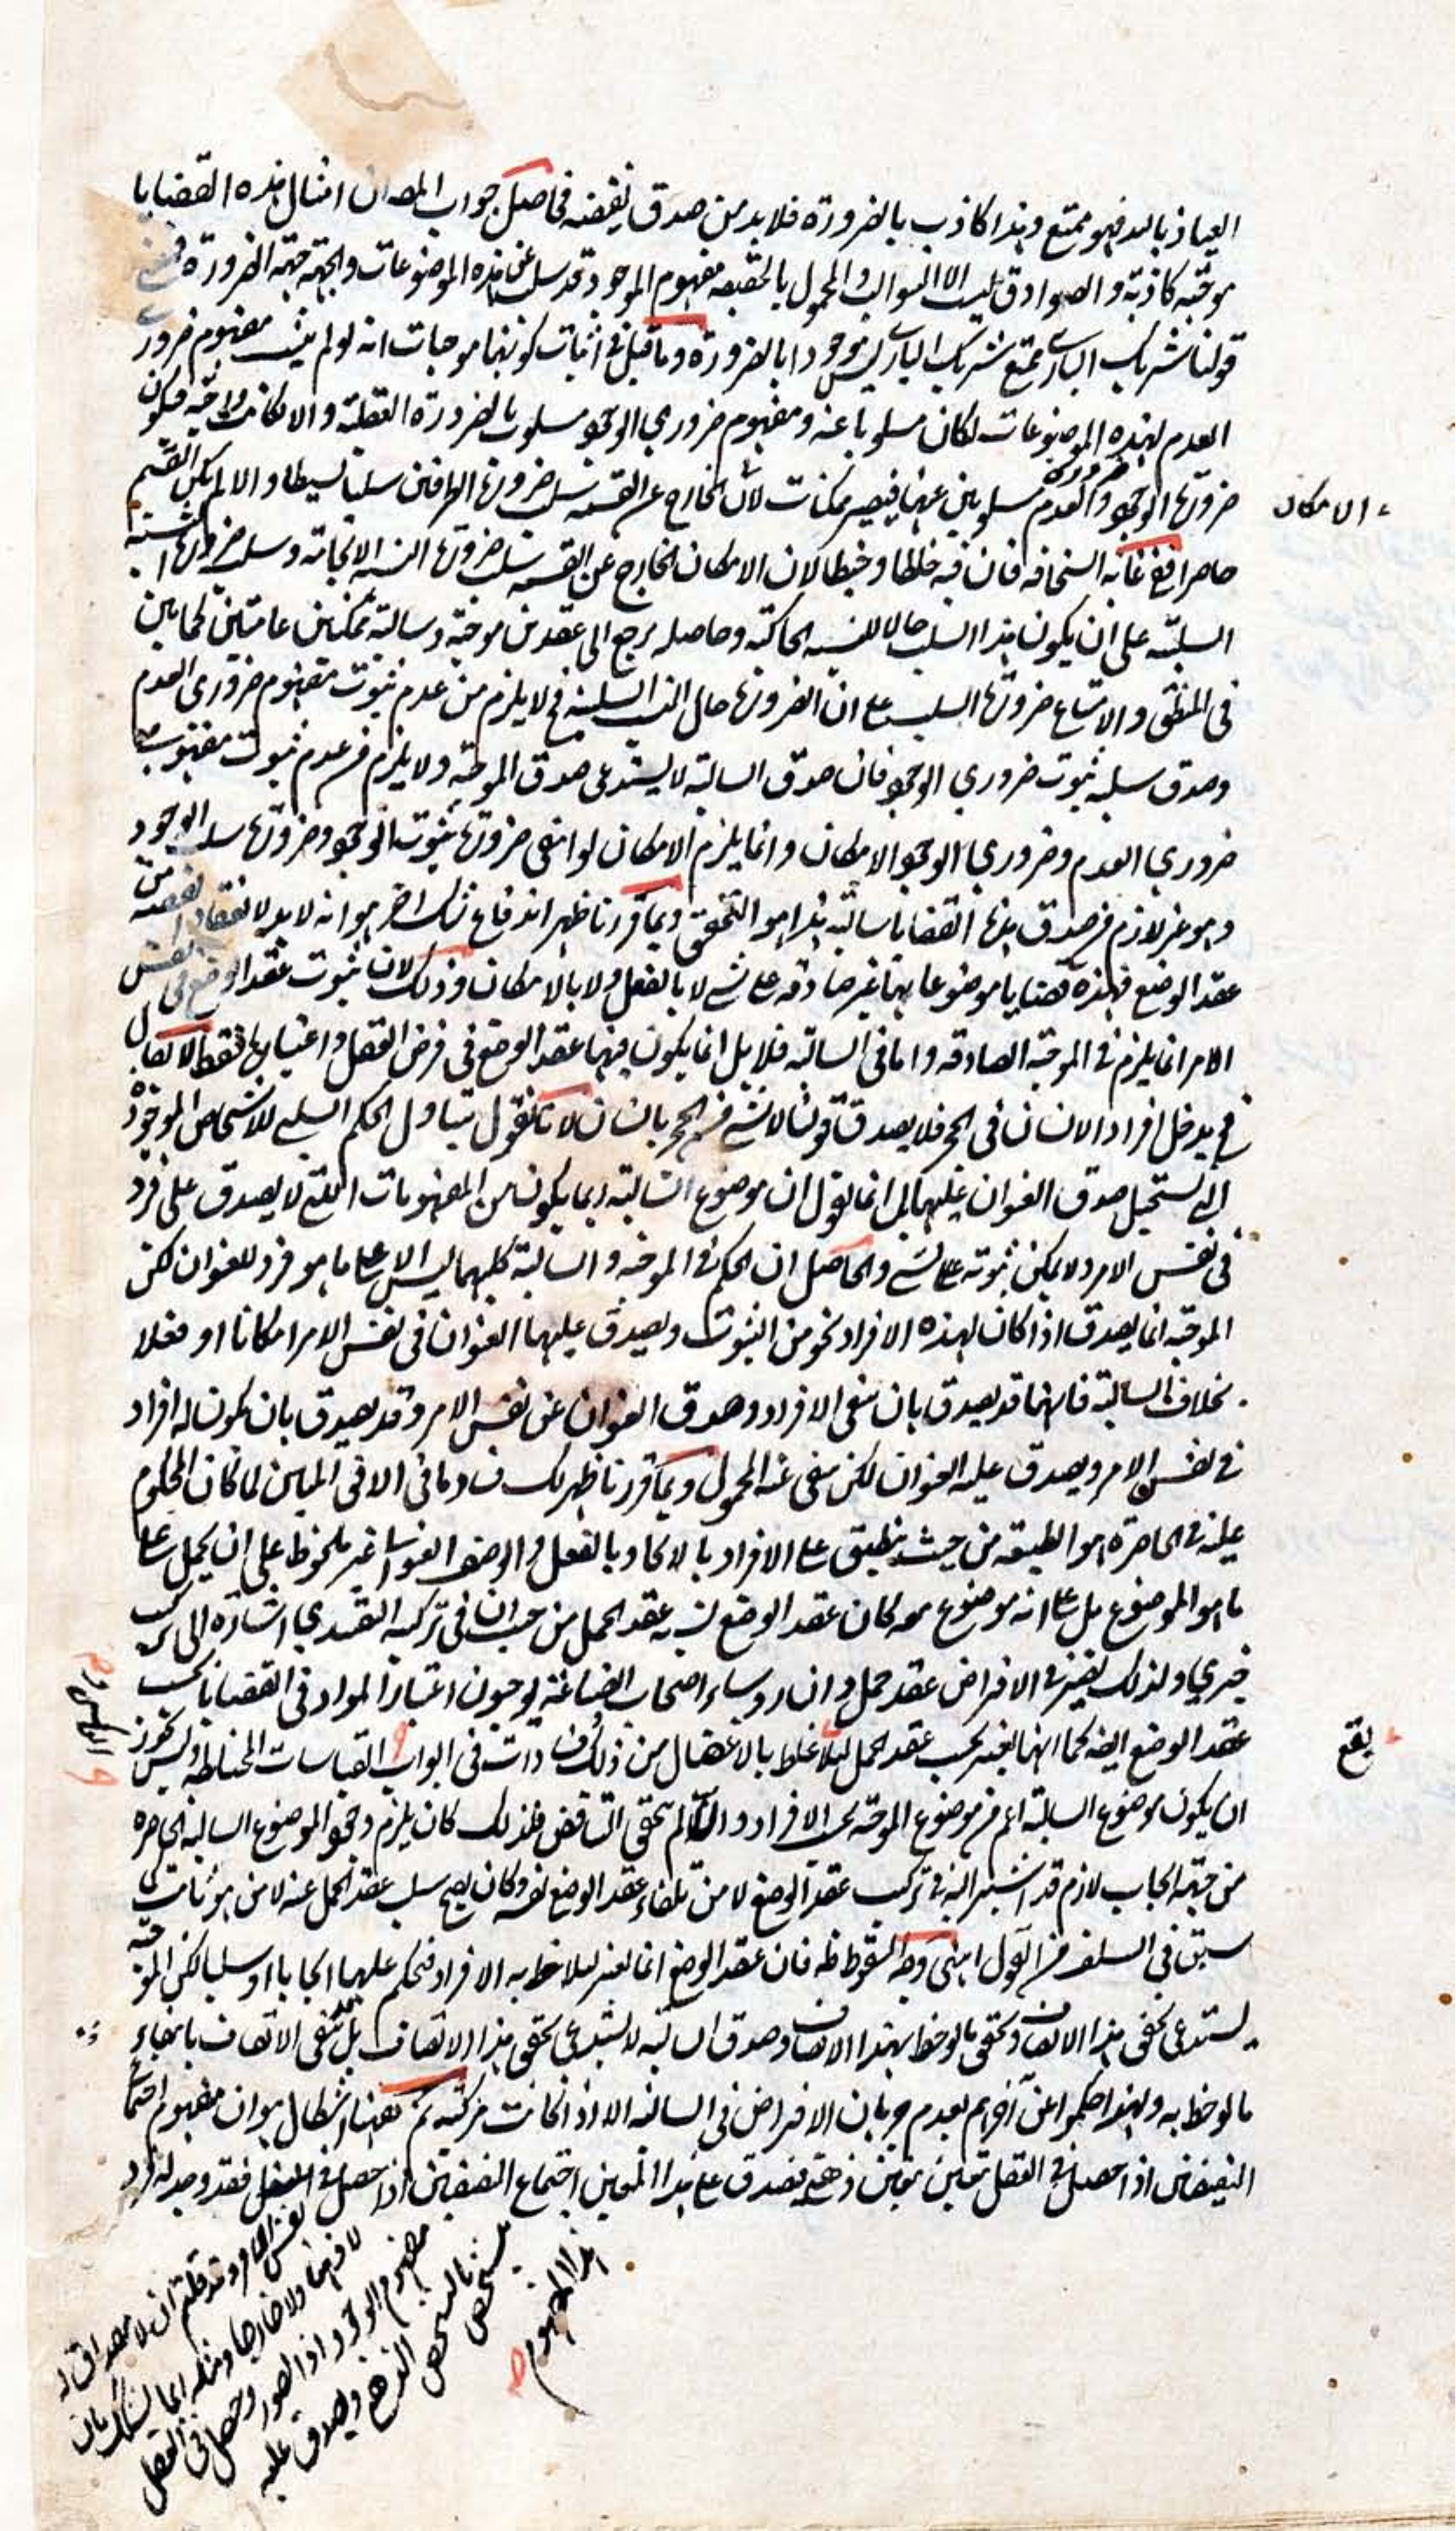 العياذ بالله فهو ممتنع وهذا كاذب بالضرورة فلا بد من صدق نقيضه فحاصل جواب المص ان امثال هذه القضايا
موجبة كاذبة والصوادق ليست الا السوالب والمحمول بالحقيقة مفهوم الموجود قد سلب عن هذه الموضوعات والجهة جهة الضرورة فمعنى
قولنا شريك الباري ممتنع شريك الباري ليس موجودا بالضرورة وما قيل في اثبات كونها موجبات انه لو لم يثبت مفهوم ضروري
العدم لهذه الموضوعات لكان مسلوبا عنه ومفهوم ضروري الوجود مسلوب بالضرورة العقلية والا لكانت واجبة فيكون
ضرورة الوجود والعدم مسلوبين عنها فيصير ممكنات لان الخارج عن القسمة سلب ضرورة الطرفين سلبا بسيطا والا لم يكن القسم
الامكان
حاصرا ففي غاية السخافة فان فيه خلطا وخبطا لان الامكان الخارج عن القسمة سلب ضرورة النسبة الايجابية وسلب ضرورة النسبة
السلبية على ان يكون هذا السلب حالا للنسبة الحاكية وحاصله يرجع الى عقدين موجبة وسالبة ممكنتين عامتين كما بين
في المنطق والامتناع ضرورة السلب على ان الضرورة حال النسبة السلبية فح لا يلزم من عدم ثبوت مفهوم ضروري العدم
وصدق سلبه ثبوت ضروري الوجود فان صدق السالبة لا يستدعى صدق الموجبة ولا يلزم من عدم ثبوت مفهوم
ضروري العدم وضروري الوجود الامكان وانما يلزم الامكان لو انتفى ضرورة ثبوت الوجود وضرورة سلب الوجود
وهو غير لازم من صدق هذه القضايا سالبة هذا هو التحقيق وبما قررنا ظهر اندفاع شك اخر هو انه لا بد لانعقاد القضية من
عقد الوضع فهذه قضايا موضوعاتها غير صادقة على شي لا بالفعل ولا بالامكان وذلك لان ثبوت عقد الوضع في نفس
الامر انما يلزم في الموجبة الصادقة واما في السالبة فلا بل انما يكون فيها عقد الوضع في فرض العقل واعتباره فقط لا يقال
فح يدخل افراد الانسان في الحجر فلا يصدق قولنا لا شي من الحجر بانسان لانا نقول يتناول الحكم السلبي للاشخاص الموجودة
التي يستحيل صدق العنوان عليها بل انما نقول ان موضوع السالبة ربما يكون من المفهومات التي لا يصدق على فرد
في نفس الامر ولا يمكن ثبوته على شي والحاصل ان الحكم في الموجبة والسالبة كليهما ليس الا على ما هو فرد للعنوان لكن
الموجبة انما يصدق اذا كان لهذه الافراد نحو من الثبوت ويصدق عليها العنوان في نفس الامر امكانا او فعلا
بخلاف السالبة فانها قد يصدق بان ينفى الافراد وصدق العنوان عن نفس الامر وقد يصدق بان يكون له افراد
في نفس الامر ويصدق عليه العنوان لكن ينفى عنه المحمول وبما قررنا ظهر لك فساد ما في الافق المبين لما كان المحكوم
عليه في الحاصرة هو الطبيعة من حيث ينطبق على الافراد بالاتحاد بالفعل والوصف العنواني غير ملحوظ على ان يحمل على
ما هو الموضوع بل على انه موضوع كان عقد الوضع يشبه عقد الحمل من حيث ان في تركيبه التقييدي اشارة الى تركيب
خبري ولذلك يصير في الافتراض عقد حمل وان رؤساء اصحاب الصناعة يوجبون اعتبار المواد في القضايا بحسب
عقد الوضع ايضا كما انها يعتبر بحسب عقد الحمل لئلا غلط بالاغفال من ذلك في ابواب القياسات المختلطة وليس يجوز
يقع
ان يكون موضوع السالبة اعم من موضوع الموجبة بحسب الافراد والا لم يتحقق التناقض فلذلك كان يلزم وجود الموضوع السالبة الحاصرة
من جهة ايجاب لازم قد اشير اليه في تركيب عقد الوضع لا من تلقاء عقد الوضع نفسه وكان يصح سلب عقد الحمل عنه لا من
سبق في السلف من القول انتهى وجه السقوط ظ فان عقد الوضع انما يعتبر لملاحظة الافراد فيحكم عليها ايجابا او سلبا لكن الموجبة
يستدعى تحقق هذا الاتصاف وتحقق ما لوحظ بهذا الاتصاف وصدق السالبة لا يستدعى تحقق هذا الاتصاف بل قد ينتفى الاتصاف بانتفاء
ما لوحظ به ولهذا حكموا عن آخرهم بعدم جريان الافتراض في السالبة الا اذا كانت مركبة ثم ههنا اشكال هو ان مفهوم اجتماع
النقيضين اذا حصل في العقل تعين بتعين ذهني فيصدق على هذا المعين اجتماع النقيضين اذا حصل في العقل فقد وجد له فرد
نفس الامر وقد قلتم ان لا مصداق له
لا ذهنا ولا خارجا ومثله ايضا يشكل بان
مفهوم الوجود اذا تصور وحصل في العقل
يتشخص بالتشخص الذهني ويصدق عليه
هذا المفهوم